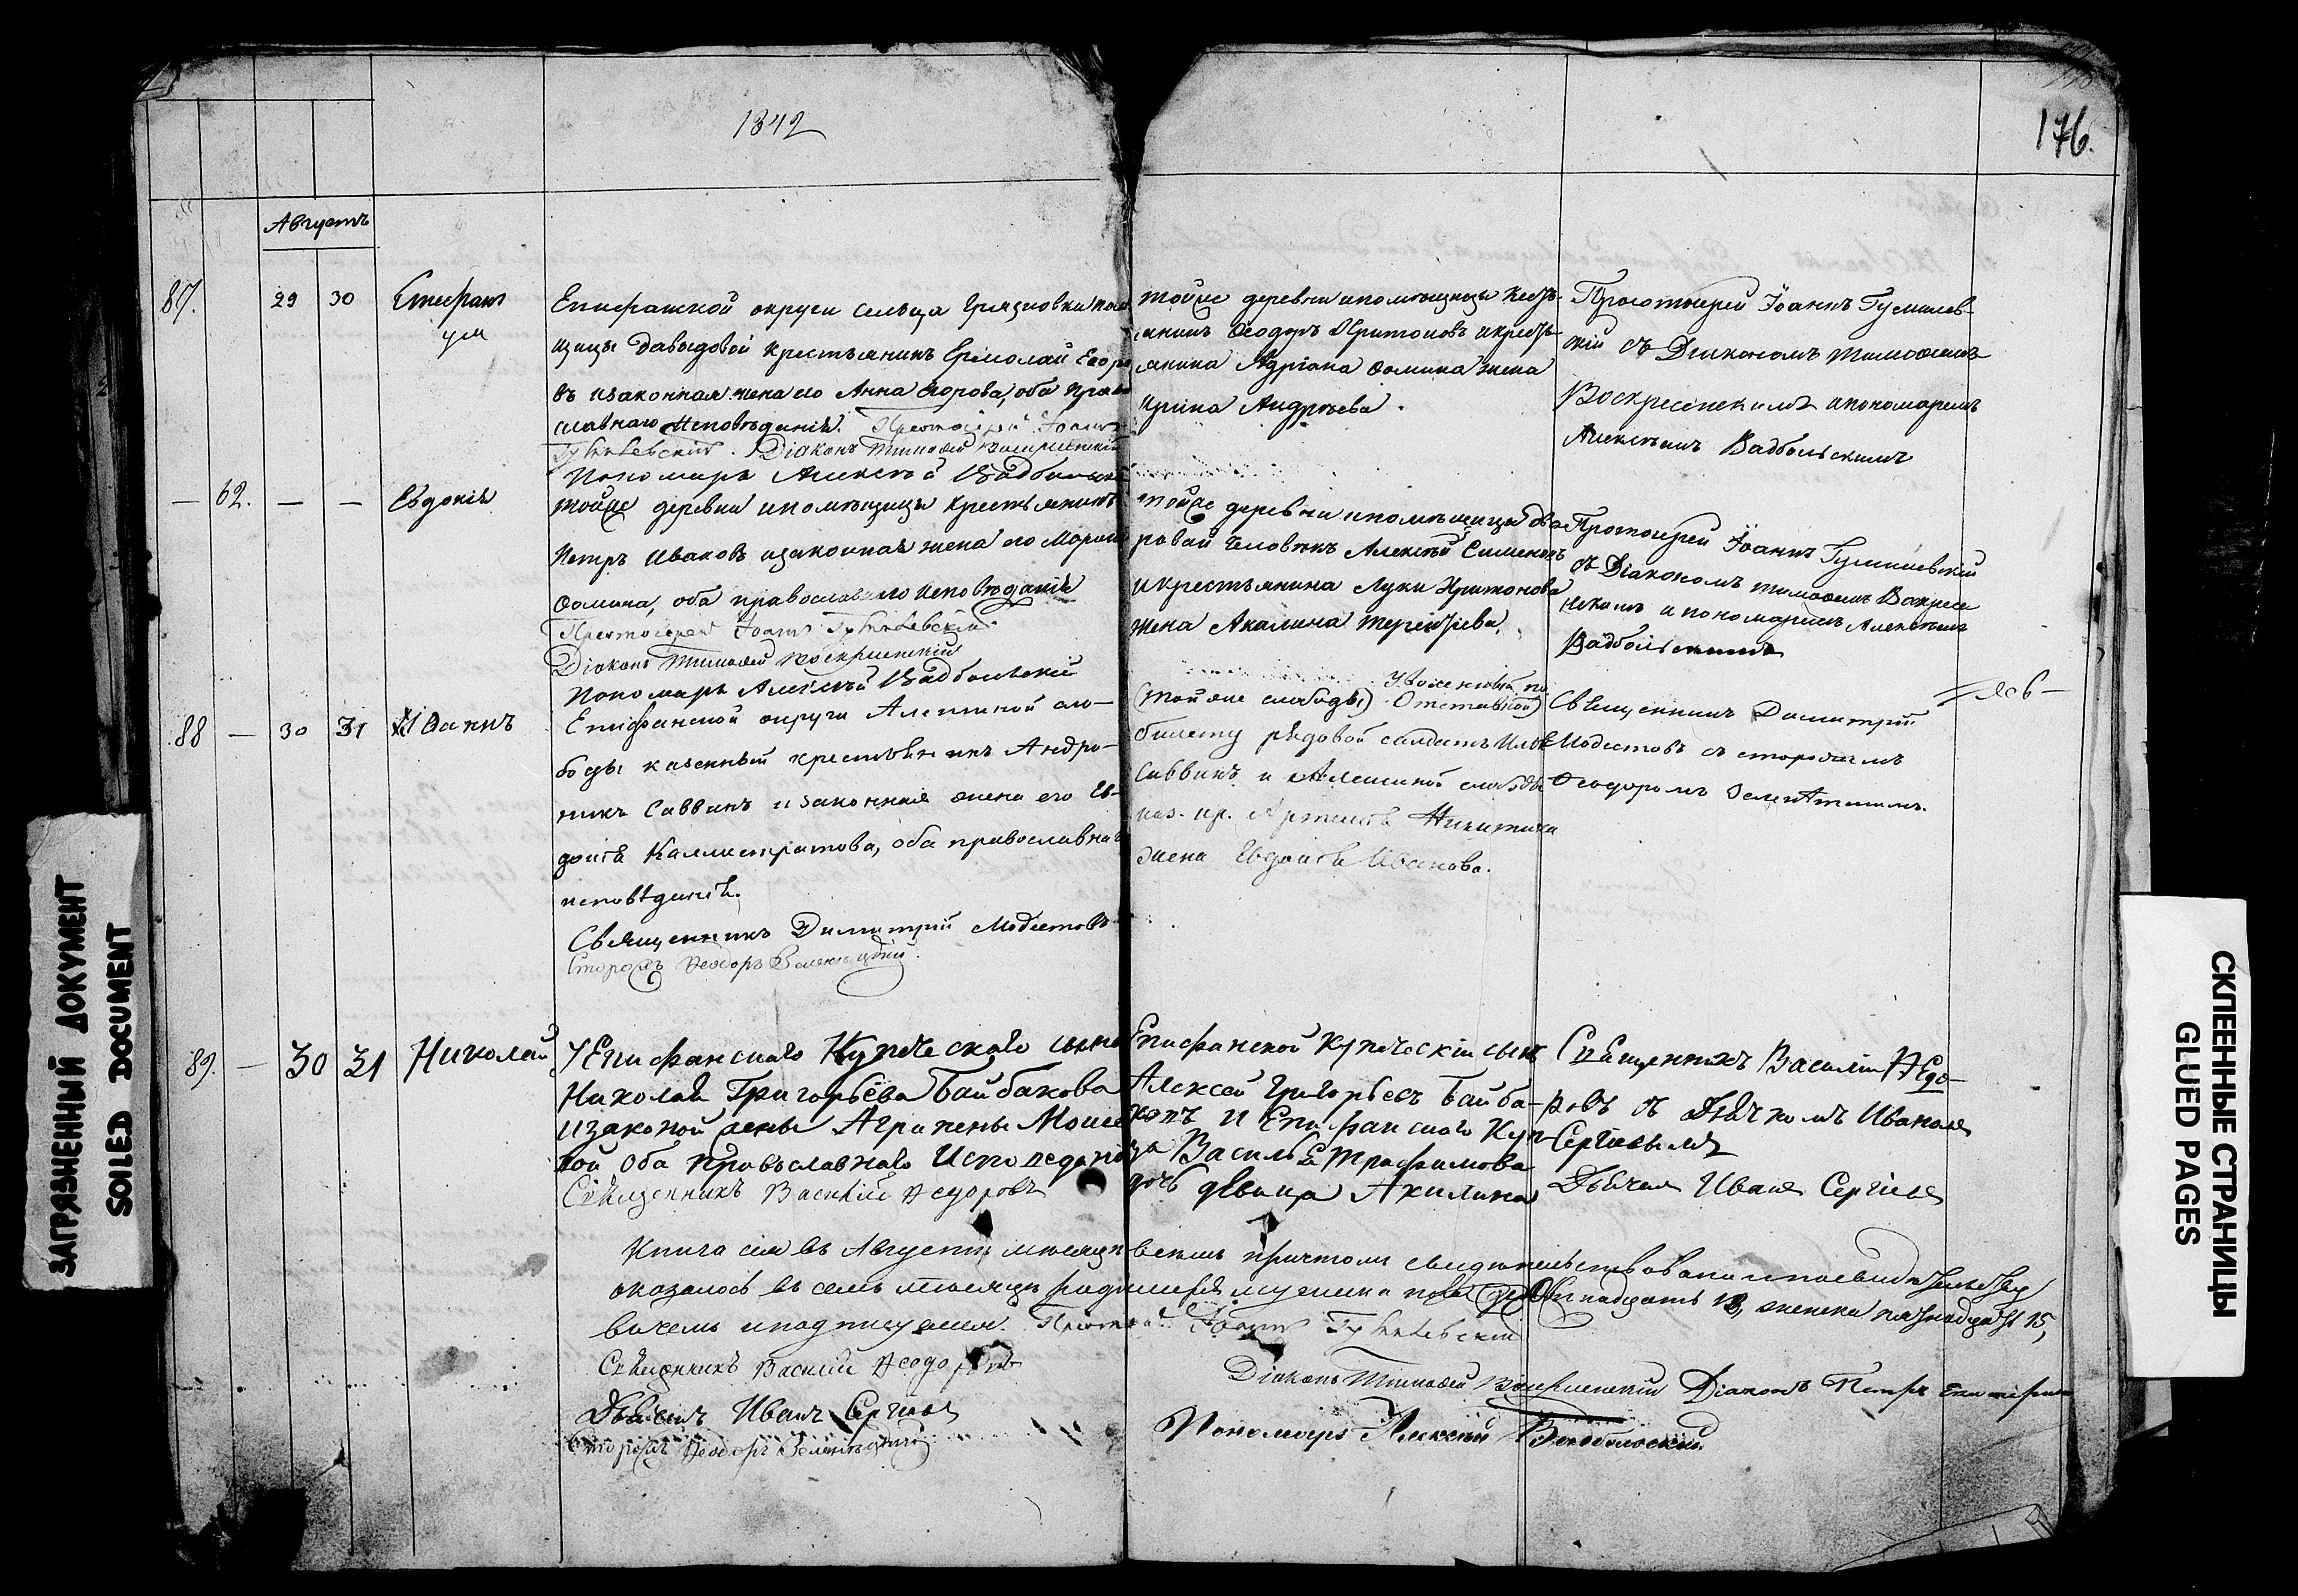 1842
176.
Августъ
87.
29
30
Епифанъ
Епифанской округи сельца Грязновки пом
щицы Давыдовой крестьянинъ Ермолай Егоро
въ изаконная жена его Анна Егорова, оба право
славнаго исповѣданія. Протоіерей Іоаннъ
Гумилевскій. Діаконъ Тимофей Воскресенскій
Пономарь Алексѣй Вадбольскій
тойже деревни ипомѣщицы кресть-
янинъ Ѳеодоръ Харитоновъ икресть-
янина Адріана Ѳомина жена
Ирина Андреева.
Протоіерей Іоаннъ Гумилев-
скій съ Діакономъ Тимоѳеемъ
Воскресенскимъ ипономаремъ
Алексѣемъ Вадбольскимъ
—
62.
—
—
Евдокія
тойже деревни ипомѣщицы крестьянинъ
Петръ Ивановъ изаконная жена его
Ѳомина, оба православнаго исповѣданія
Протоіерей Іоаннъ Гумилевскій
Діаконъ Тимофей Воскресенскій
Пономарь Алексѣй Вадбольскій
тойже деревни ипомѣщицы дво-
ровой человѣкъ Алексѣй Симеоновъ
икрестьянина Луки Харитонова
жена Акилина Терентьева.
Протоіерей Іоаннъ Гумилевскій
съ Діакономъ Тимоѳеемъ Воскресе
нскимъ и пономаремъ Алексѣемъ
Вадбольскимъ
88
—
30
31
Іоаннъ
Епифанской округи Алешиной сло-
боды казенный крестьянинъ Андро-
никъ Саввинъ изаконная жена его Ев-
докія Каллистратова, оба православнаго
исповѣданія.
Священникъ Димитрій Модестовъ
Сторожъ Ѳеодоръ
(той же слободы) Отставной
билету рядовой солдатъ
Саввинъ и Алешиной слободы
каз. кр. Артемія Никитина
жена Евдокія Иванова.
Священникъ Димитрій
Модестовъ съ сторожемъ
Ѳеодоромъ
89.
—
30
31
Николай
У Епифанскаго Купеческаго сына
Николая Григорьева Байбакова
изаконой жены Агрипены Моисе
вой оба Православнаго Исповедания
Священникъ Василий Ѳедоровъ
Епифанской купеческій сынъ
Алексей Григорьевъ Байба-
ковъ и Епифанскаго Куп-
ца Василья Трофимова
дочь девица Акилина
Священникъ Василій Ѳедо-
ровъ съ Дьячкомъ Иваномъ
Сергіевымъ
Дьячекъ Иванъ Сергіевъ
Книга сія въ Августѣ мѣсяцѣ всемъ причтомъ свидѣтельствована и посвидѣтельству
оказалось въ семъ мѣсяцѣ родившихся мужеска пола надцать 18, женска пятнадцать 15,
вочемъ иподписуемся. Протоіерей Іоаннъ Гумилевскій
Священникъ Василий Ѳеодоровъ
Діаконъ Тимофей Воскресенскій Діаконъ Петръ
Дьячекъ Иванъ Сергіевъ
Пономарь Алексѣй Вадбольскій
Сторожъ Ѳеодоръ
ЗАГРЯЗНЕННЫЙ ДОКУМЕНТ
SOILED DOCUMENT
СКЛЕЕННЫЕ СТРАНИЦЫ
GLUED PAGES